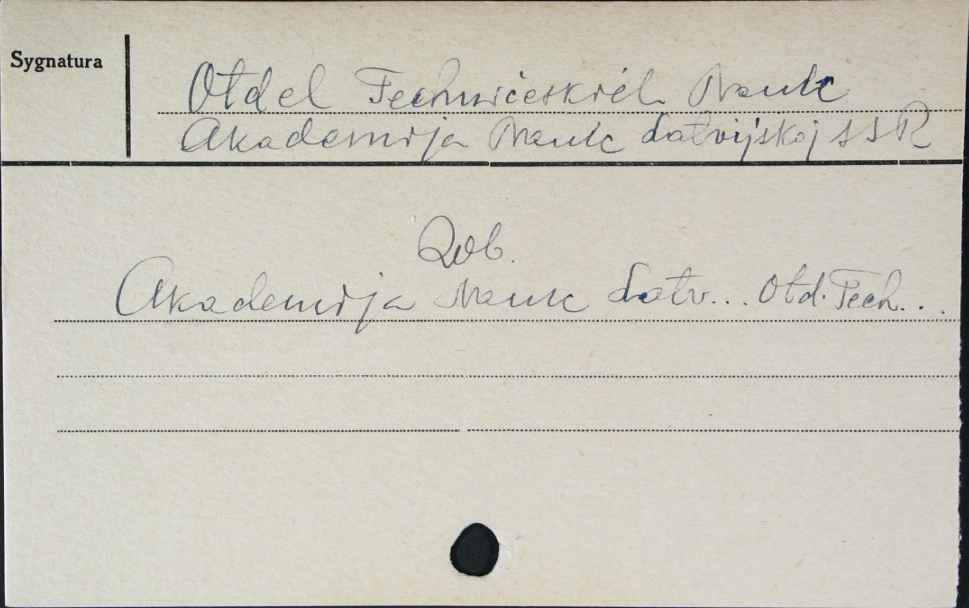 Sygnatura
Otdel Techničeskich Nauk
Akademija Nauk Latvijskoj SSR
Zob.
Akademija Nauk Latv... Otd. Tech...